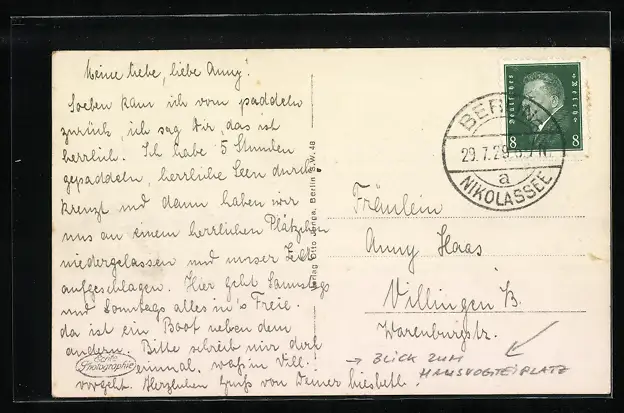 Meine liebe, liebe Anny!
Soeben kam ich vom paddeln
zurück, ich sag Dir, das ist
herrlich. Ich habe 5 Stunden
gepaddeln, herrliche Seen durch-
kreuzt und dann haben wir
uns an einem herrlichen Plätzchen
niedergelassen und unser Zelt
aufgeschlagen. Hier geht Samstags
und Sonntags alles in's Freie.
da ist ein Boot neben dem
andern. Bitte schreib mir doch
einmal, was in Vill.
vorgeht. Herzlichen Gruß von Deiner
Echte
Photographie
Verlag Otto Junga, Berlin S.W. 48
Deutsches Reich
8 8
BERLIN
29.7.29
a
NIKOLASSEE
Fräulein
Anny Haas
Villingen B.
Warenburgstr.
→ BLICK ZUM
HAUSVOGTEIPLATZ